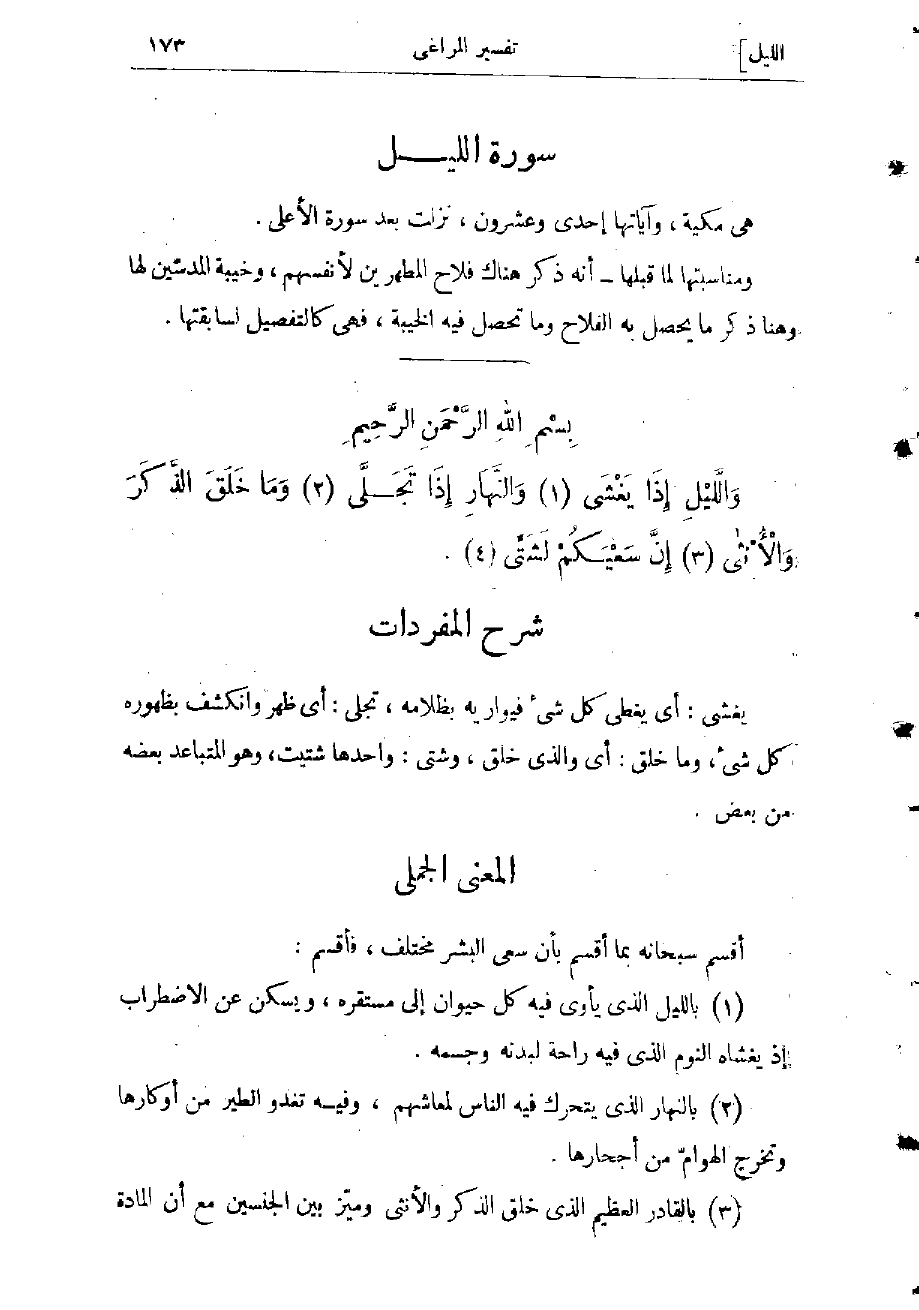 الليل] تفسير المراغى ١٧٣
سورة الليــل
هى مكية ، وآياتها إحدى وعشرون ، نزلت بعد سورة الأعلى .
ومناسبتها لما قبلها ــ أنه ذكر هناك فلاح المطهرين لأنفسهم ، وخيبة المدسّين لها
وهنا ذكر ما يحصل به الفلاح وما تحصل فيه الخيبة ، فهى كالتفصيل لسابقتها .
بِسْمِ اللهِ الرَّحْمَنِ الرَّحِيمِ
وَالَّليْلِ إِذَا يَغْشَى (١) وَالنَّهَارِ إِذَا تَجَــلَّى (٢) وَمَا خَلَقَ الذَّكَرَ
وَالْأُنْثَى (٣) إِنَّ سَعْيَــكُمْ لَشَتَّى (٤) .
شرح المفردات
يغشى : أى يغطى كل شىء فيواريه بظلامه ، تجلى : أى ظهر وانكشف بظهوره
كل شىء ، وما خلق : أى والذى خلق ، وشتى : واحدها شتيت، وهو المتباعد بعضه
من بعض .
المعنى الجملى
أقسم سبحانه بما أقسم بأن سعى البشر مختلف ، فأقسم :
(١) بالليل الذى يأوى فيه كل حيوان إلى مستقره ، ويسكن عن الاضطراب
إذ يغشاه النوم الذى فيه راحة لبدنه وجسمه .
(٢) بالنهار الذى يتحرك فيه الناس لمعاشهم ، وفيــه تغدو الطير من أوكارها
وتخرج الهوامّ من أجحارها .
(٣) بالقادر العظيم الذى خلق الذكر والأنثى وميّز بين الجنسين مع أن المادة